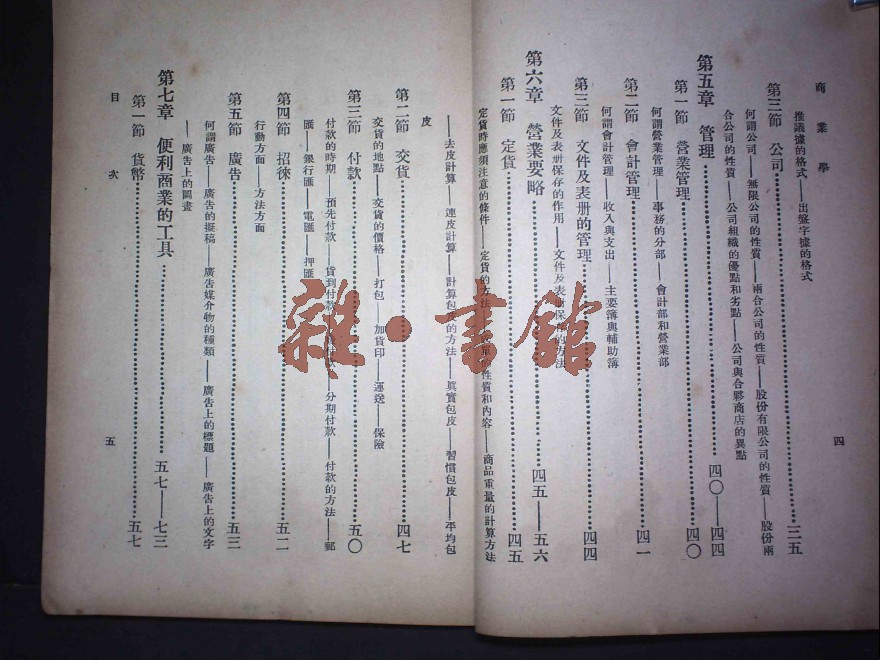 商業學
四
推議據的格式——出盤字據的格式
第三節 公司……三五
何謂公司——無限公司的性質——兩合公司的性質——股份有限公司的性質——股份兩
合公司的性質——公司組織的優點和劣點——公司與合夥商店的異點
第五章 管理……四〇—四四
第一節 營業管理……四〇
何謂營業管理——事務的分部——會計部和營業部
第二節 會計管理……四一
何謂會計管理——收入與支出——主要簿與輔助簿
第三節 文件及表册的管理……四四
文件及表册保存的作用——文件及表册保存的方法
第六章 營業要略……四五——五六
第一節 定貨……四五
定貨時應須注意的條件——定貨的方法——性質和內容——商品重量的計算方法
——去皮計算——連皮計算——計算包皮的方法——眞實包皮——習慣包皮——平均包
皮
第二節 交貨……四七
交貨的地點——交貨的價格——打包——加貨印——運送——保險
第三節 付款……五〇
付款的時期——預先付款——貨到付款——分期付款——付款的方法——郵
匯——銀行匯——電匯——押匯
第四節 招徠……五二
行動方面——方法方面
第五節 廣告……五三
何謂廣告——廣告的擬稿——廣告媒介物的種類——廣告上的標題——廣告上的文字
——廣告上的圖畫
第七章 便利商業的工具……五七—七三
第一節 貨幣……五七
目次
五
雜·書館